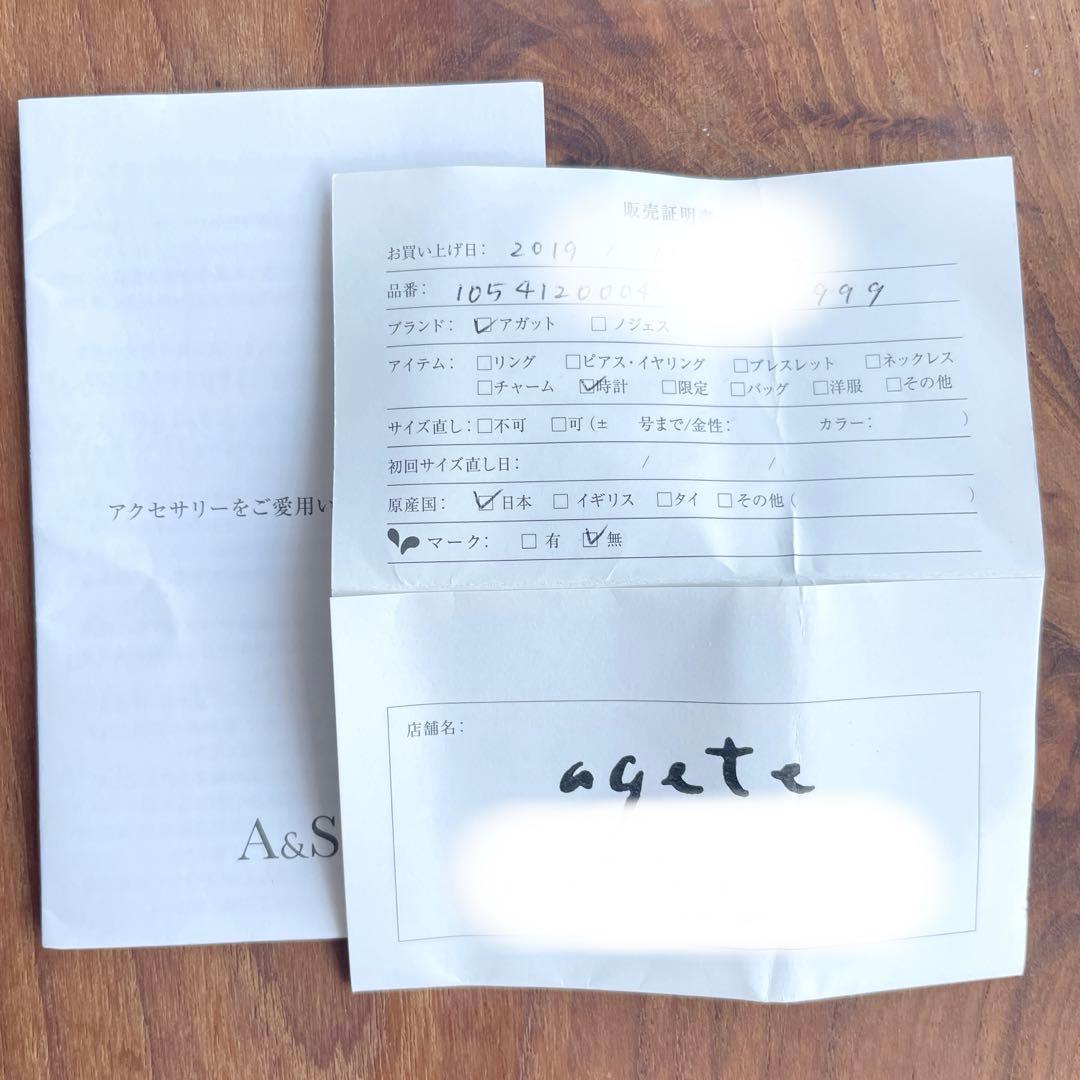 アクセサリーをご愛用い
A&S
販売証明
お買い上げ日: 2019 /
品番: 1054120004 999
ブランド: ☑アガット □ノジェス
アイテム: □リング □ピアス・イヤリング □ブレスレット □ネックレス
□チャーム ☑時計 □限定 □バッグ □洋服 □その他
サイズ直し: □不可 □可 (± 号まで/金性: カラー: )
初回サイズ直し日: / /
原産国: ☑日本 □イギリス □タイ □その他 ( )
マーク: □有 ☑無
店舗名:
agete